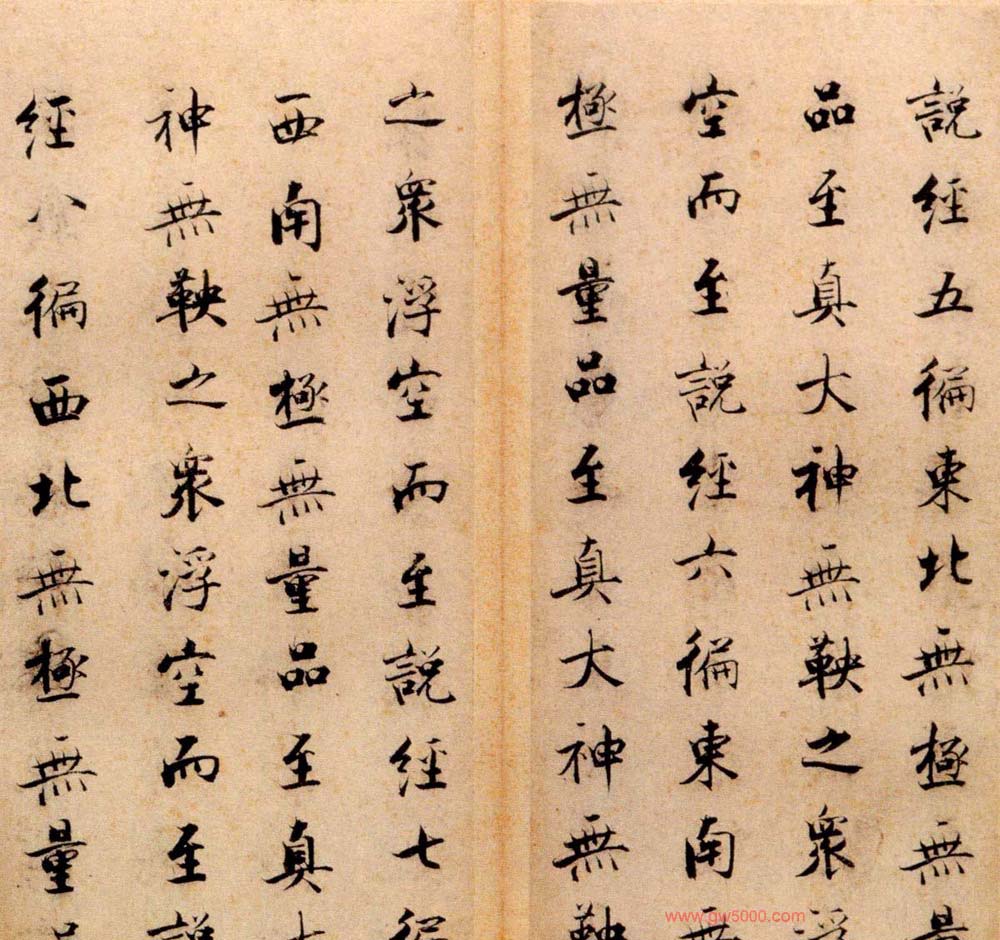 說經五徧東北無極無量
品至真大神無鞅之衆浮
空而至說經六徧東南無
極無量品至真大神無鞅
之衆浮空而至說經七徧
西南無極無量品至真大
神無鞅之衆浮空而至說
經八徧西北無極無量品
www.gw5000.com